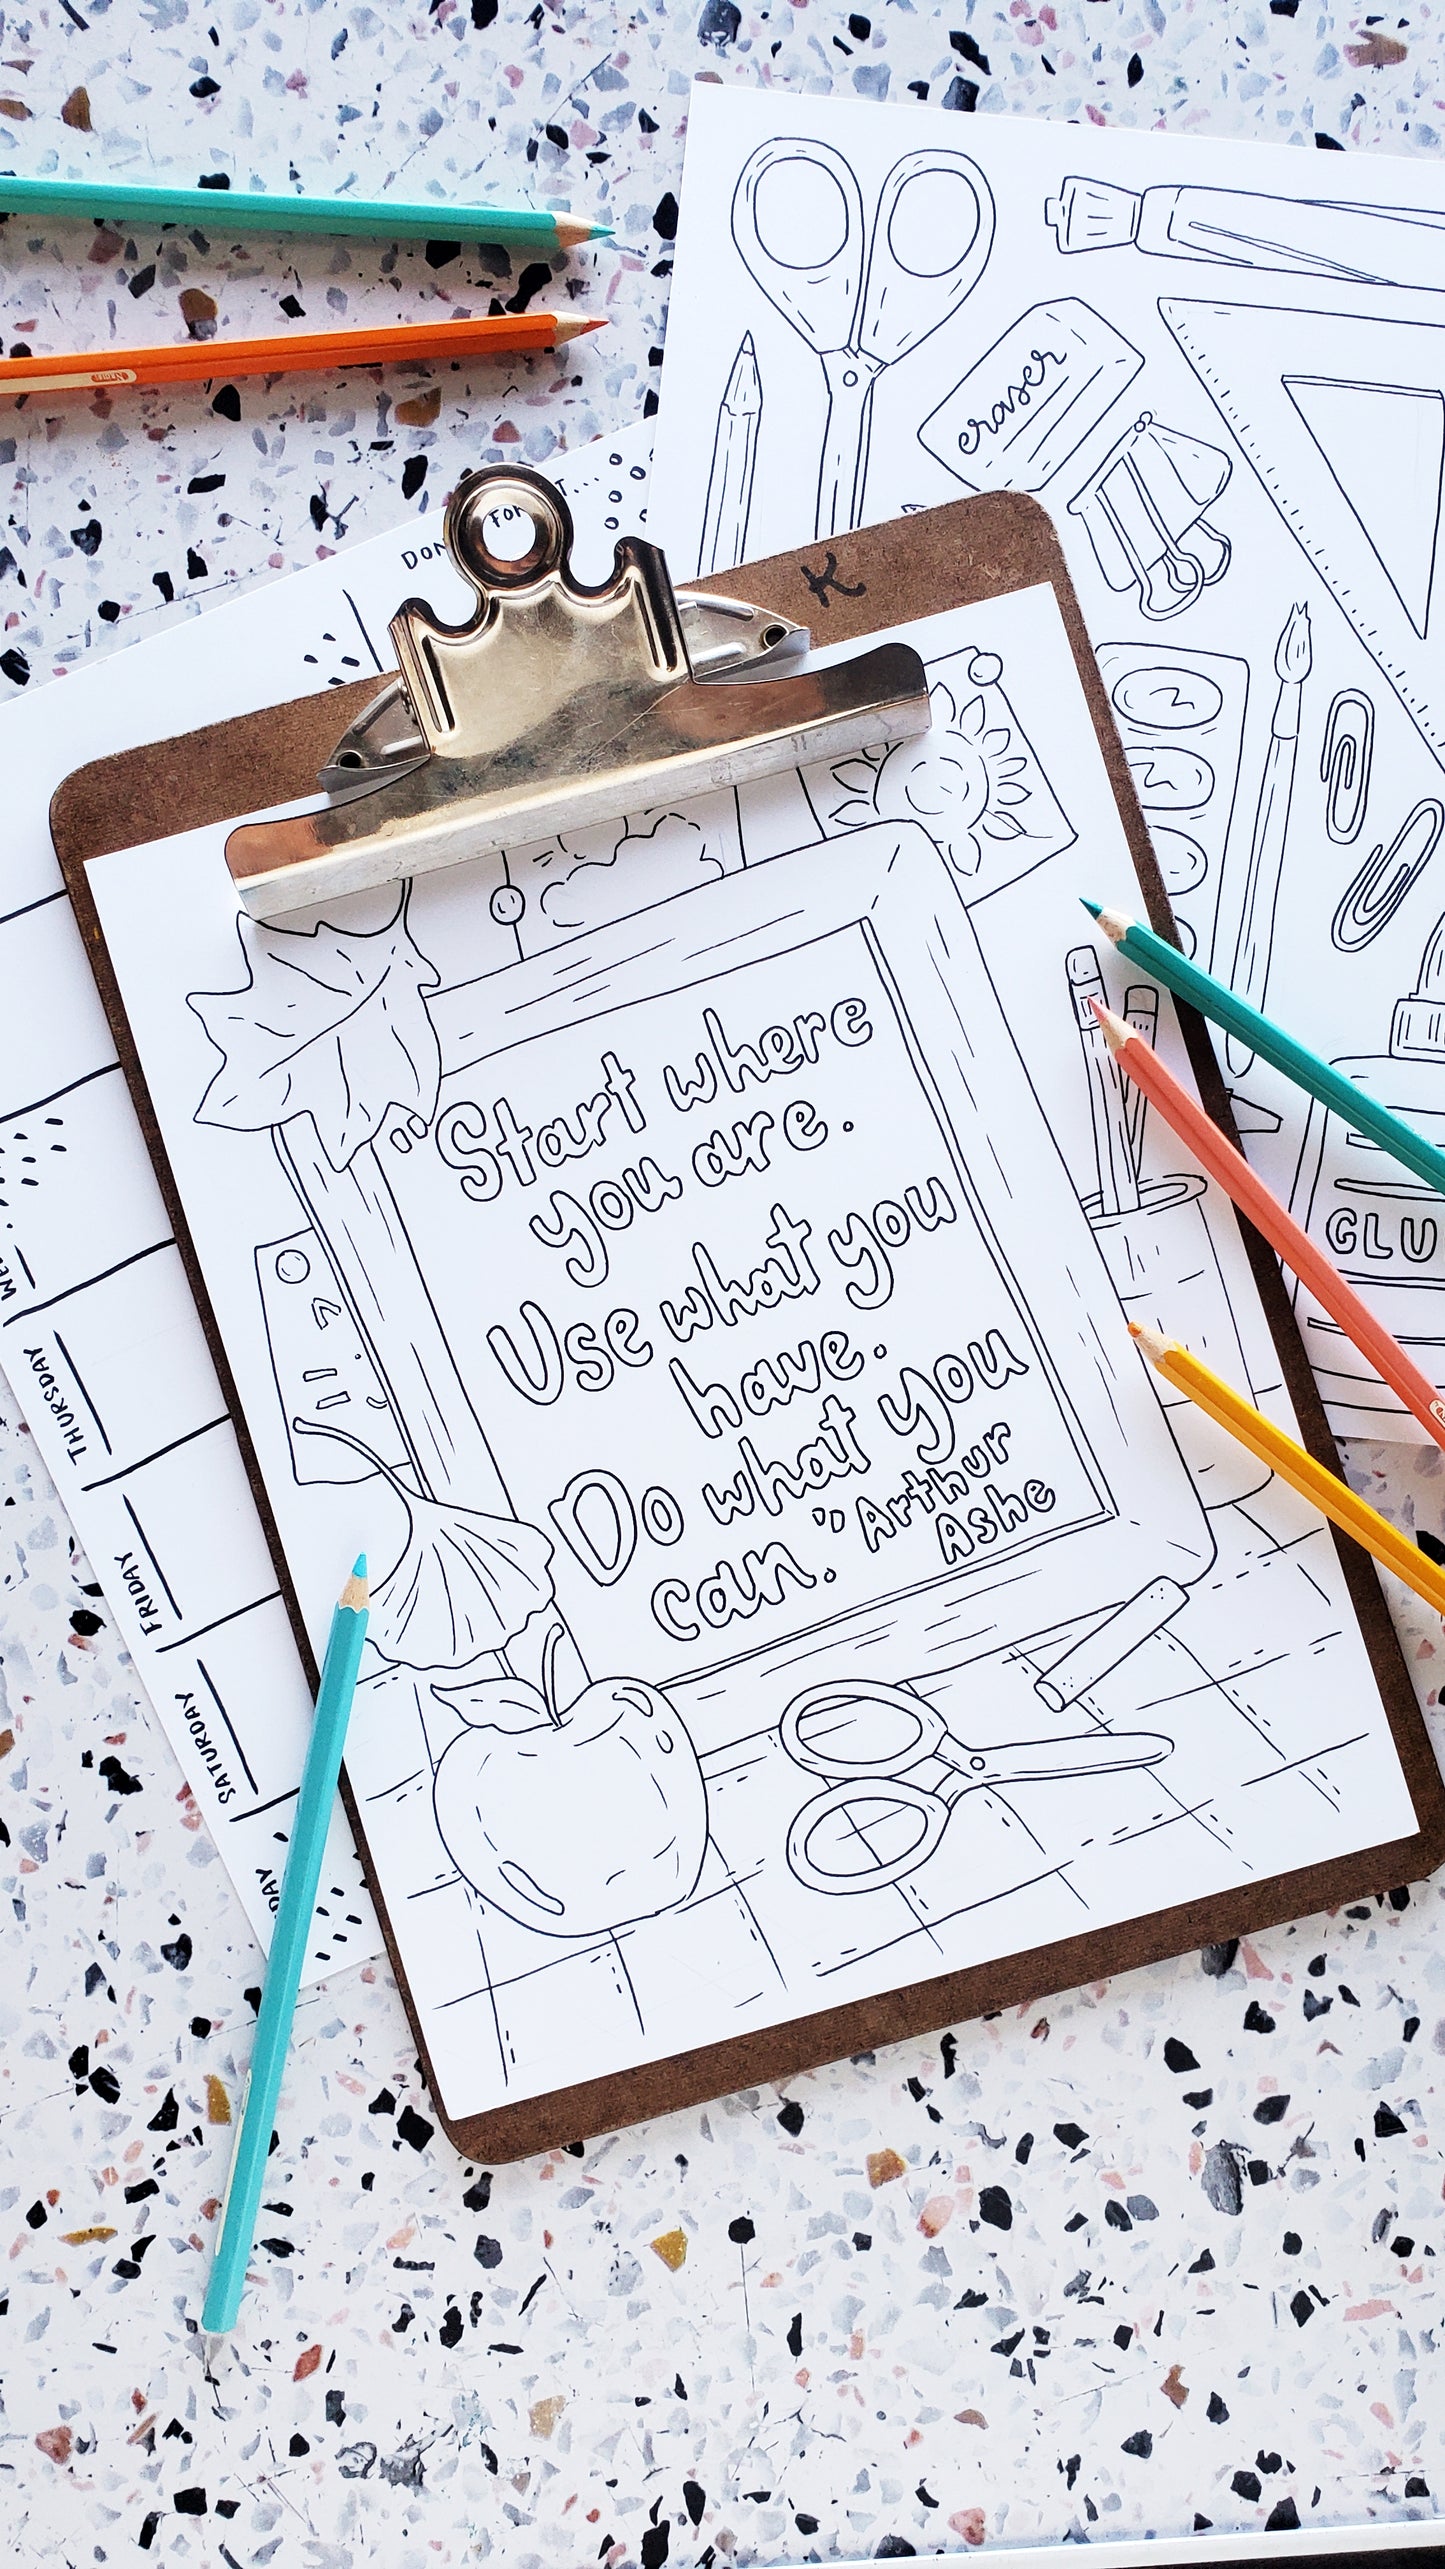 eraser
K
"Start where
you are.
Use what you
have.
Do what you
can." Arthur
Ashe
GLU
THURSDAY
FRIDAY
SATURDAY